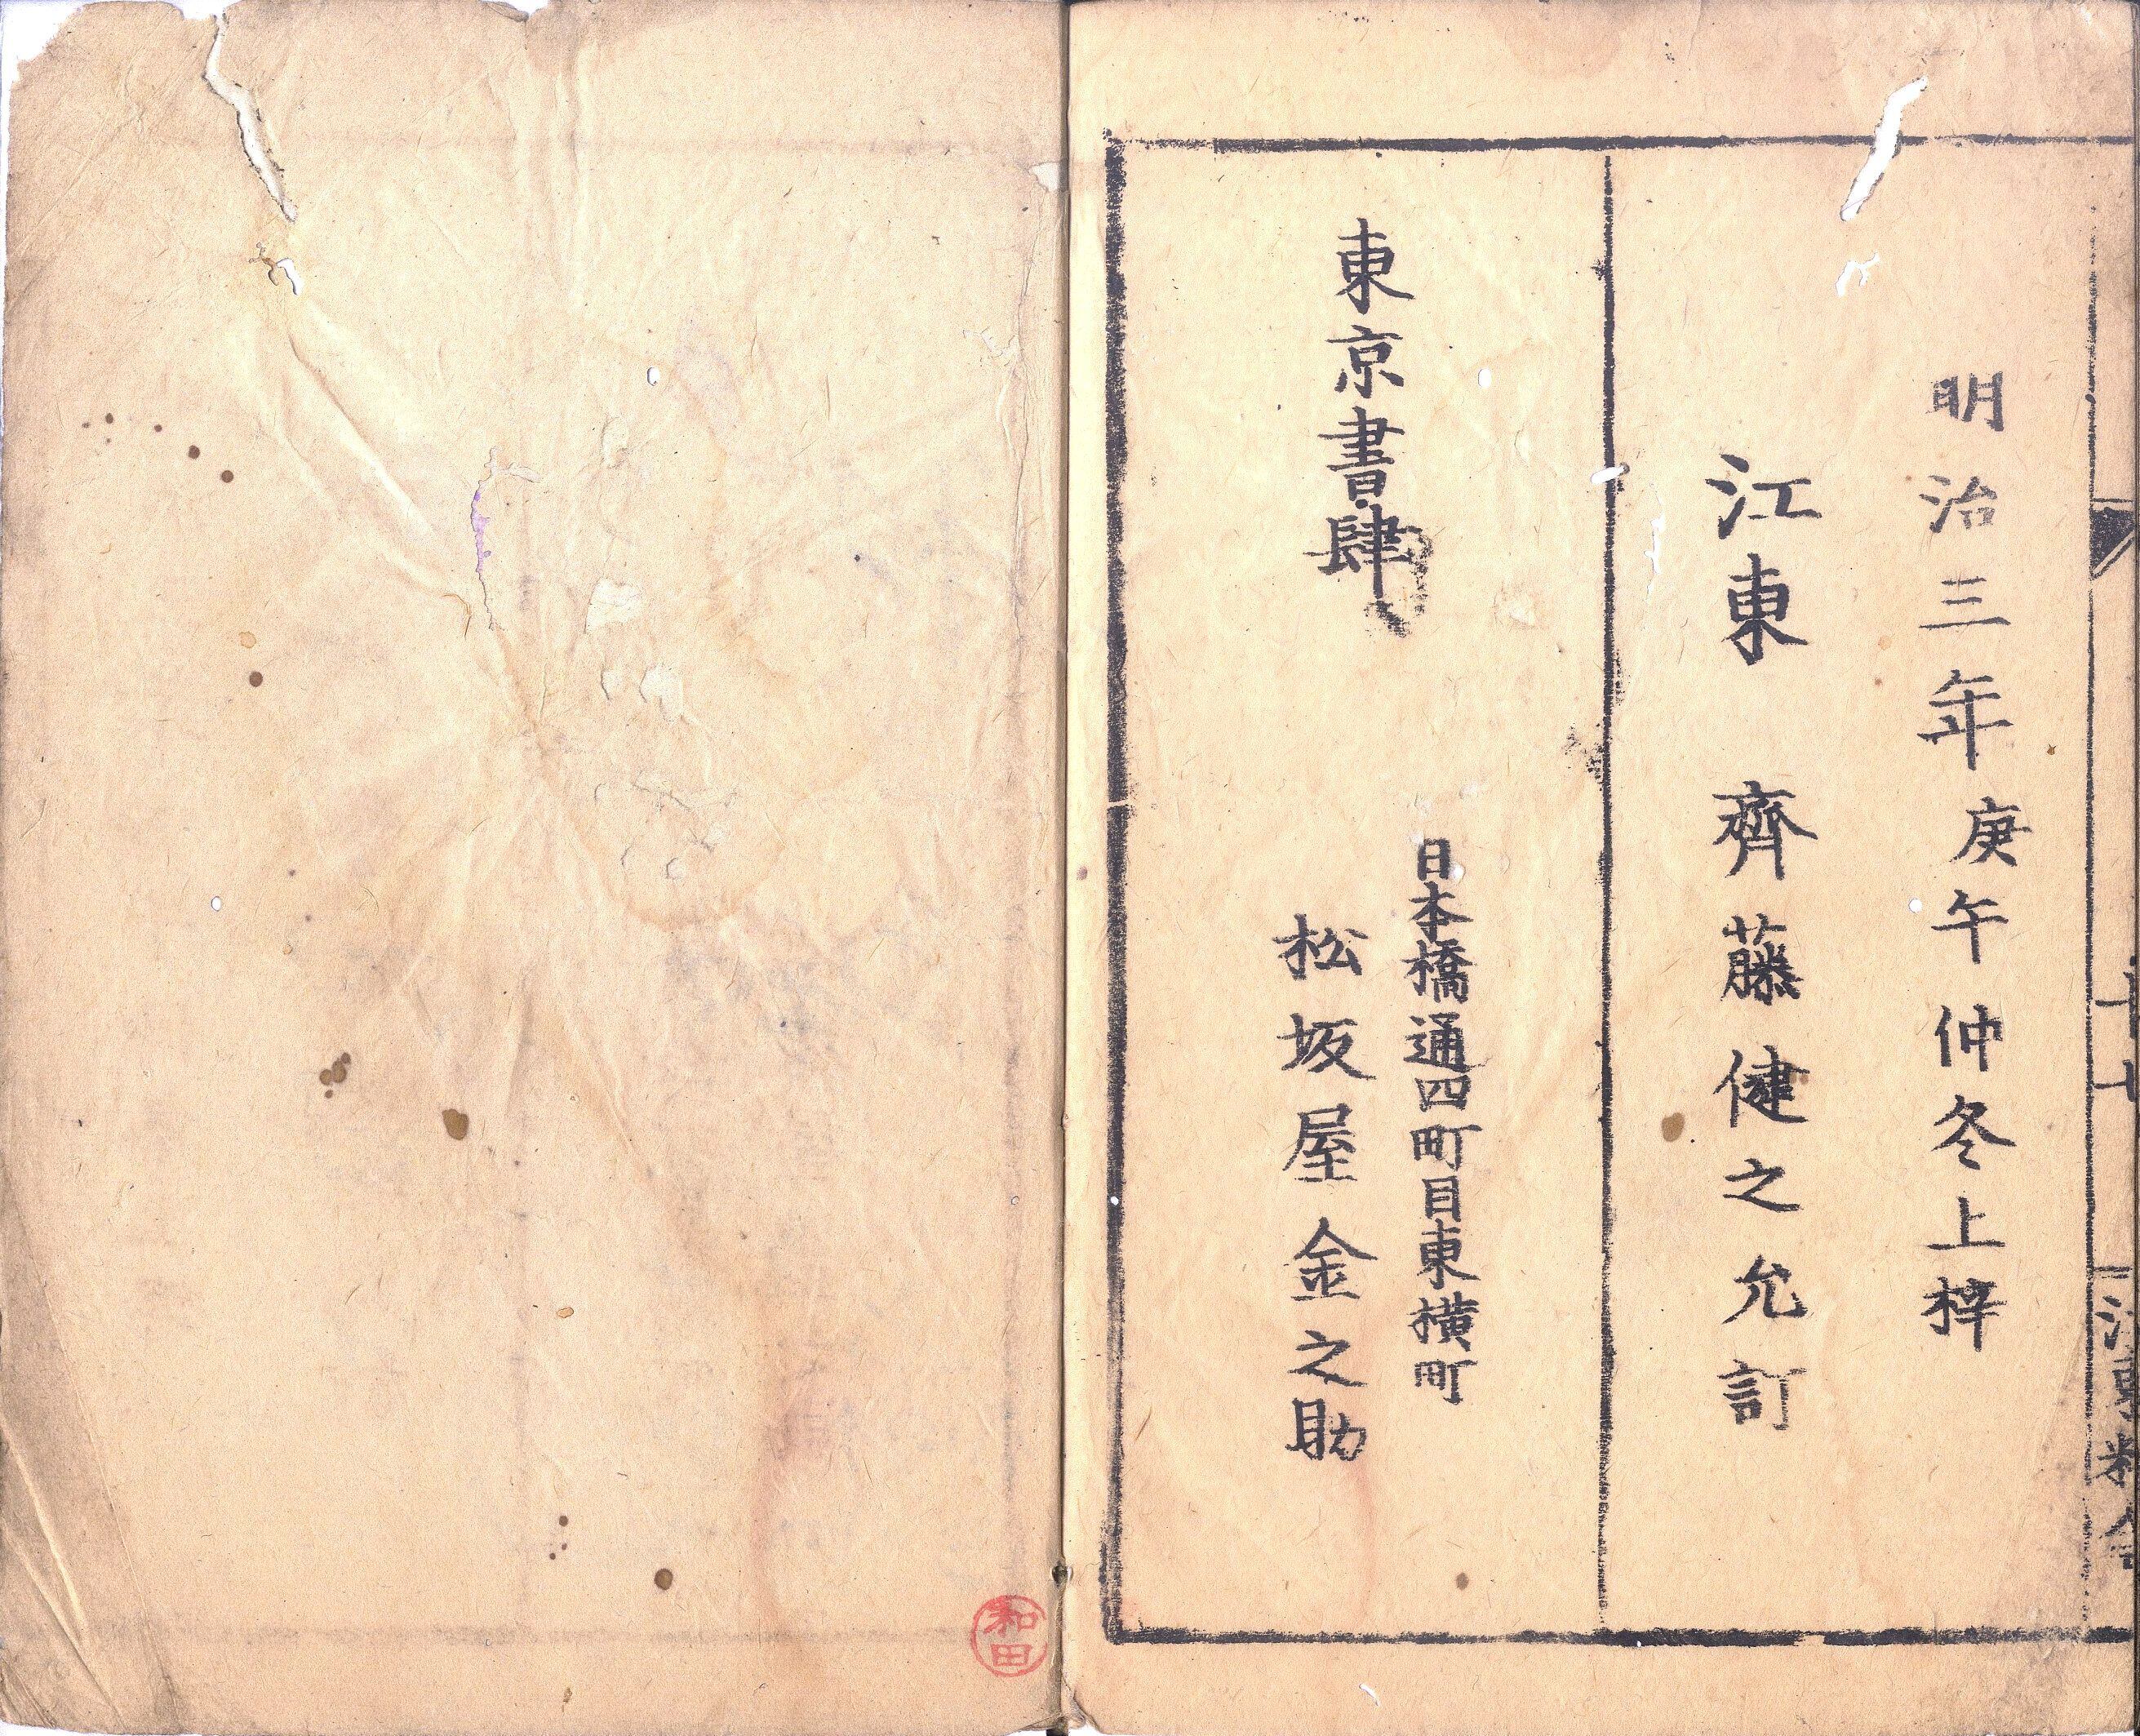 明治三年庚午仲冬上梓
江東 齊藤健之允訂
東京書肆
日本橋通四町目東横町
松坂屋金之助
和田